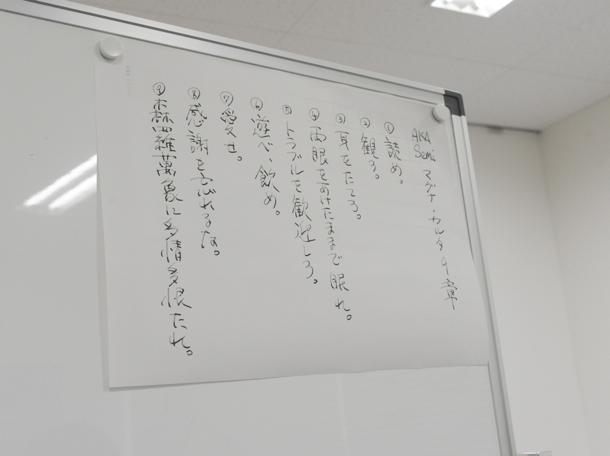 AKA Semi マグナ・カルタ 9章
①読め。
②観ろ。
③耳をたてろ。
④両眼をあけたままで眠れ。
⑤トラブルを歓迎しろ。
⑥遊べ、飲め。
⑦愛せ。
⑧感謝を忘れるな。
⑨森羅萬象に多情多恨たれ。